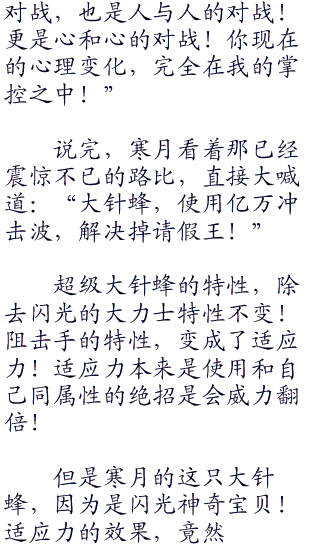 对战，也是人与人的对战！
更是心和心的对战！你现在
的心理变化，完全在我的掌
控之中！”
说完，寒月看着那已经
震惊不已的路比，直接大喊
道：“大针蜂，使用亿万冲
击波，解决掉请假王！”
超级大针蜂的特性，除
去闪光的大力士特性不变！
阻击手的特性，变成了适应
力！适应力本来是使用和自
己同属性的绝招是会威力翻
倍！
但是寒月的这只大针
蜂，因为是闪光神奇宝贝！
适应力的效果，竟然